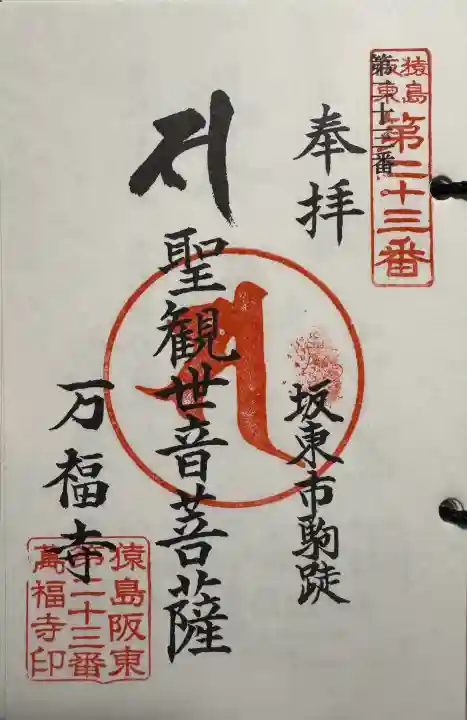 猿島
阪東
第二十三番
第十三番
奉拝
坂東市駒跿
聖観世音菩薩
万福寺
猿島阪東
第二十三番
萬福寺印